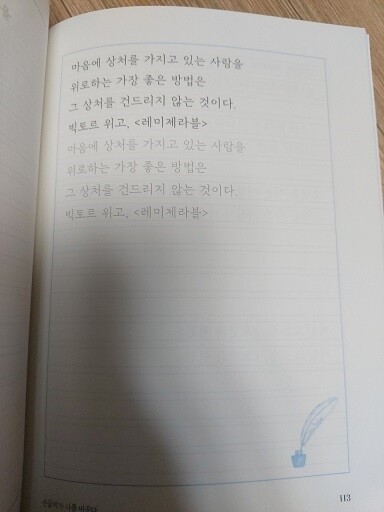 마음에 상처를 가지고 있는 사람을
위로하는 가장 좋은 방법은
그 상처를 건드리지 않는 것이다.
빅토르 위고, <레미제라블>
마음에 상처를 가지고 있는 사람을
위로하는 가장 좋은 방법은
그 상처를 건드리지 않는 것이다.
빅토르 위고, <레미제라블>
113